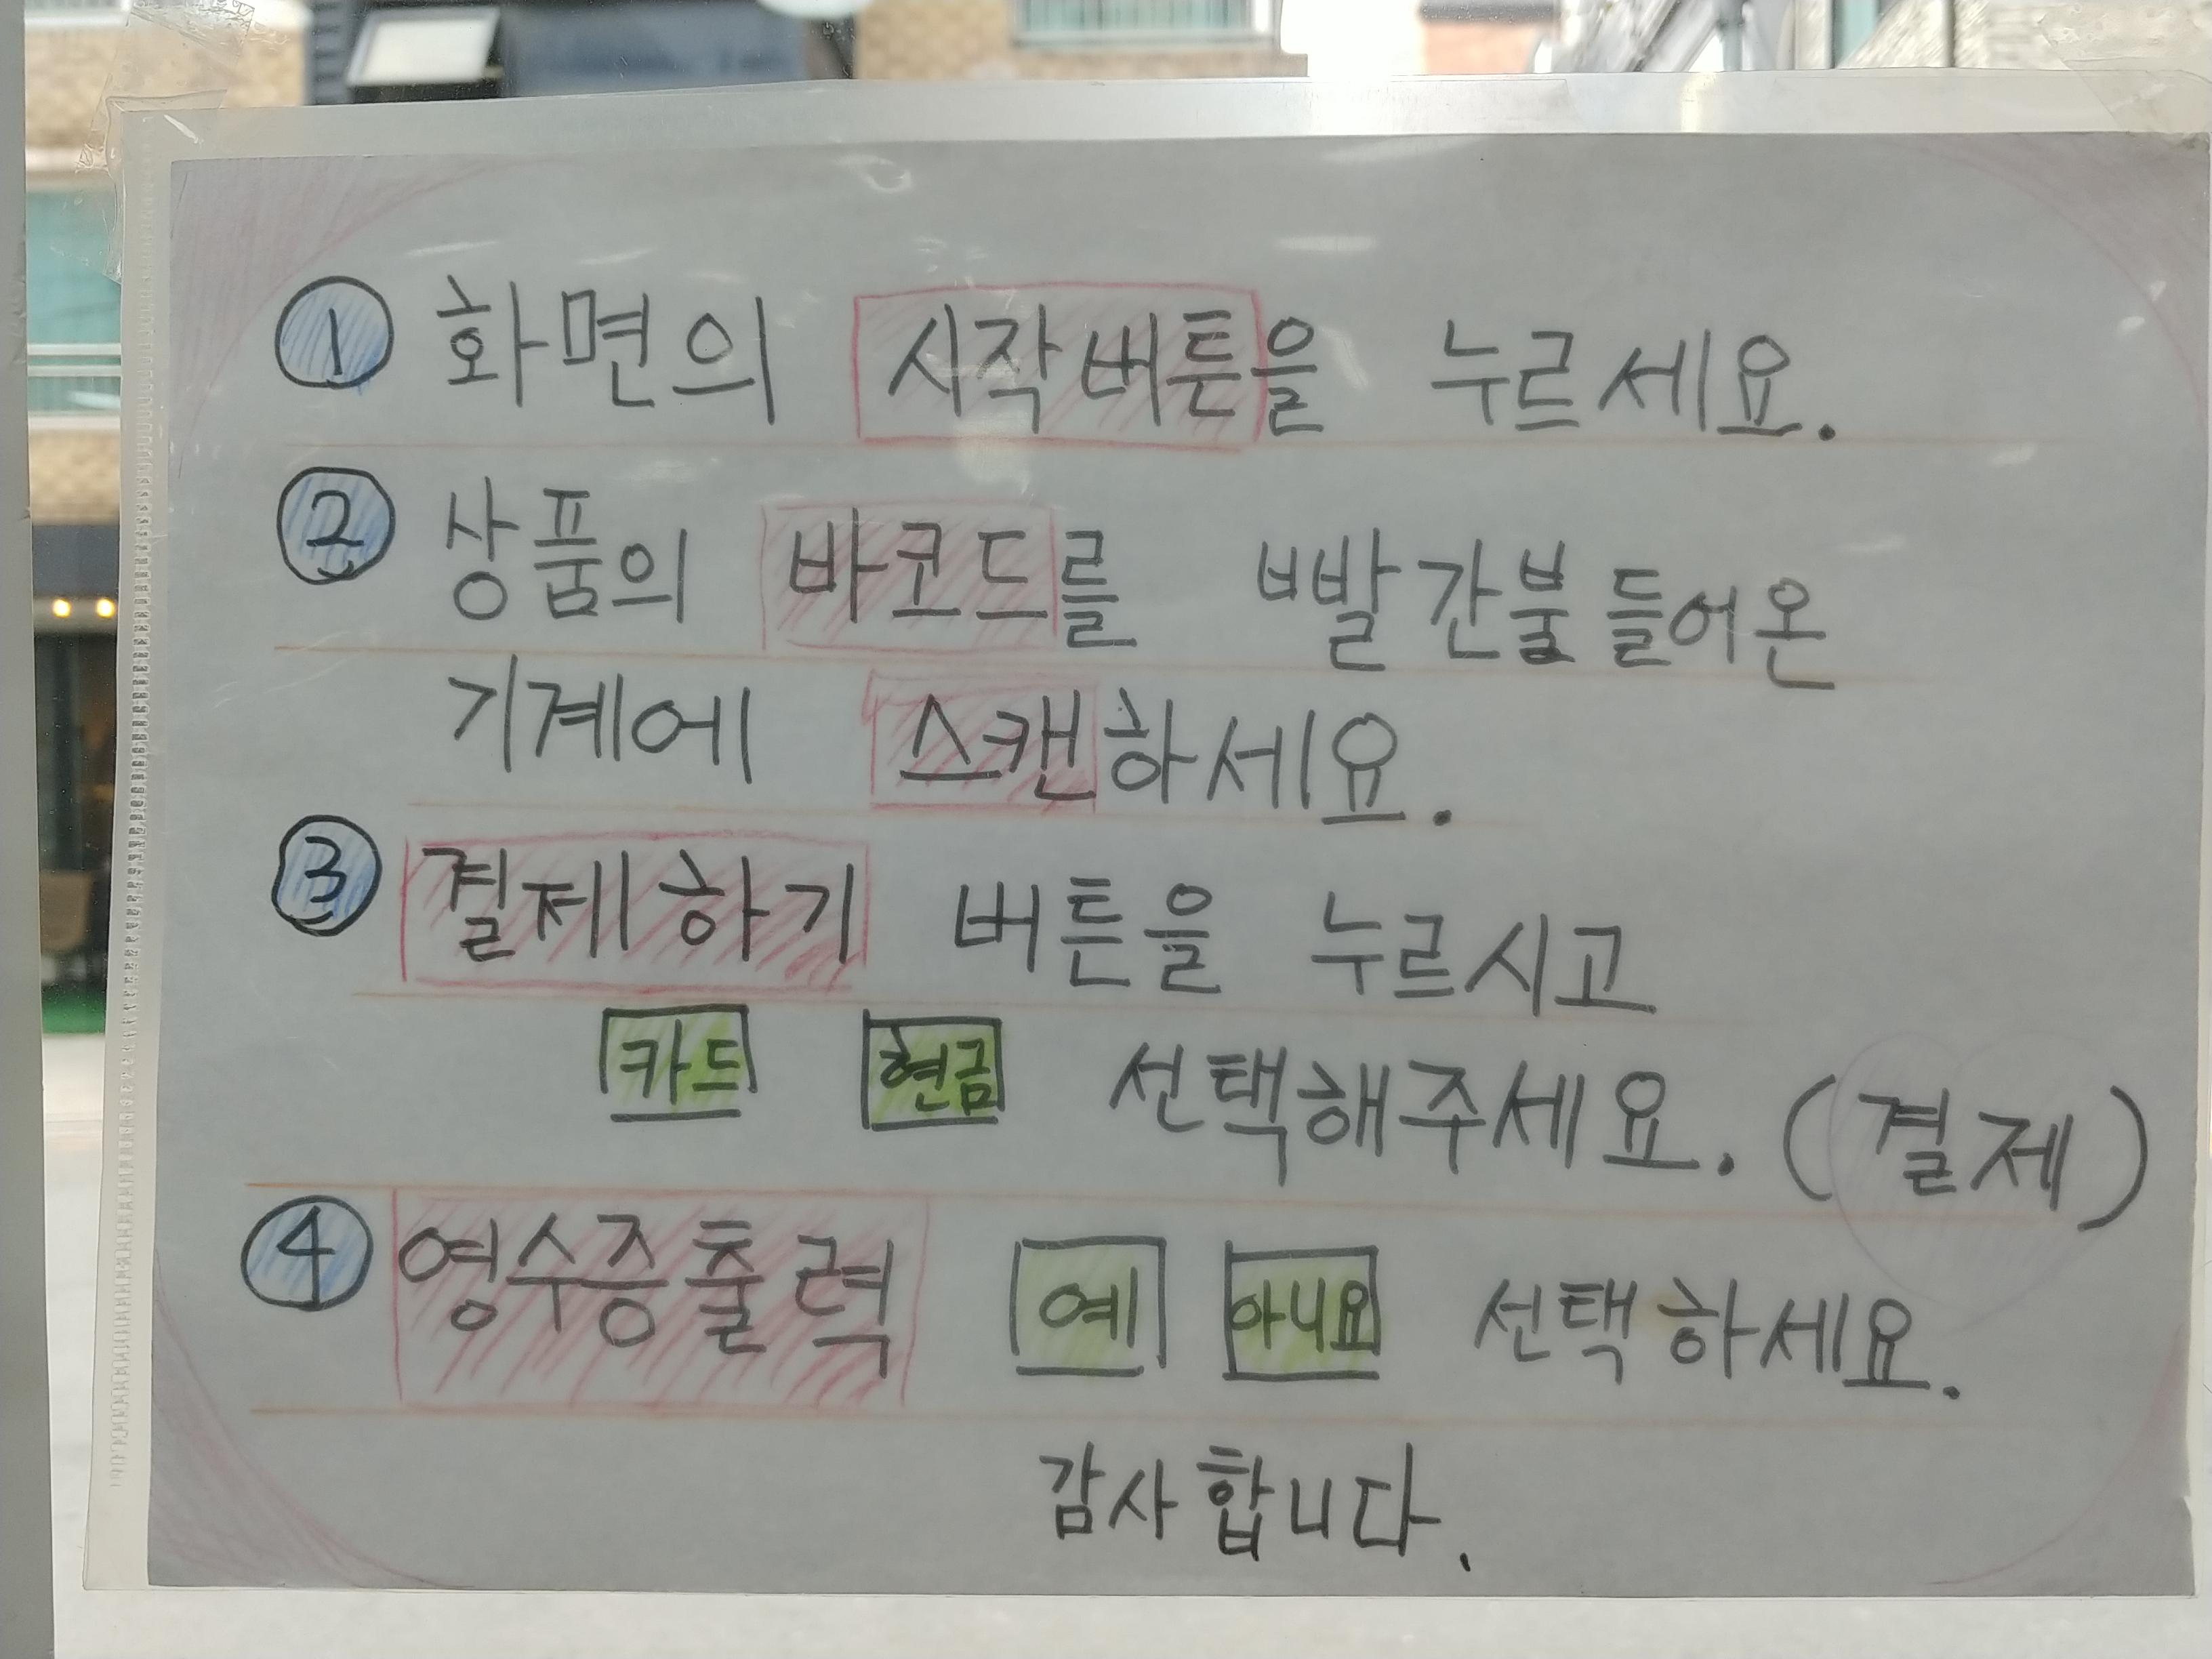 ① 화면의 시작버튼을 누르세요.
② 상품의 바코드를 빨간불 들어온
기계에 스캔하세요.
③ 결제하기 버튼을 누르시고
카드 현금 선택해주세요. (결제)
④ 영수증출력 예 아니요 선택하세요.
감사합니다.